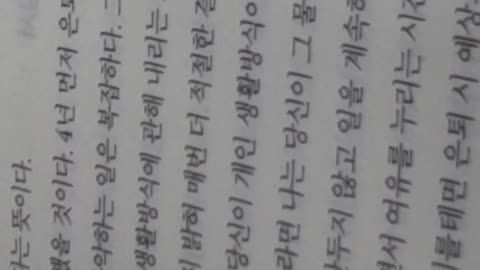 는 뜻이다.
했을 것이다. 4년 먼저 은퇴
악하는 일은 복잡하다. 그
생활방식에 관해 내리는
밝혀 매번 더 적절한 결
당신이 개인 생활방식이
라면 나는 당신이 그 물
만두지 않고 일을 계속하
면서 여유를 누리는 시간
를테면 은퇴 시 예상